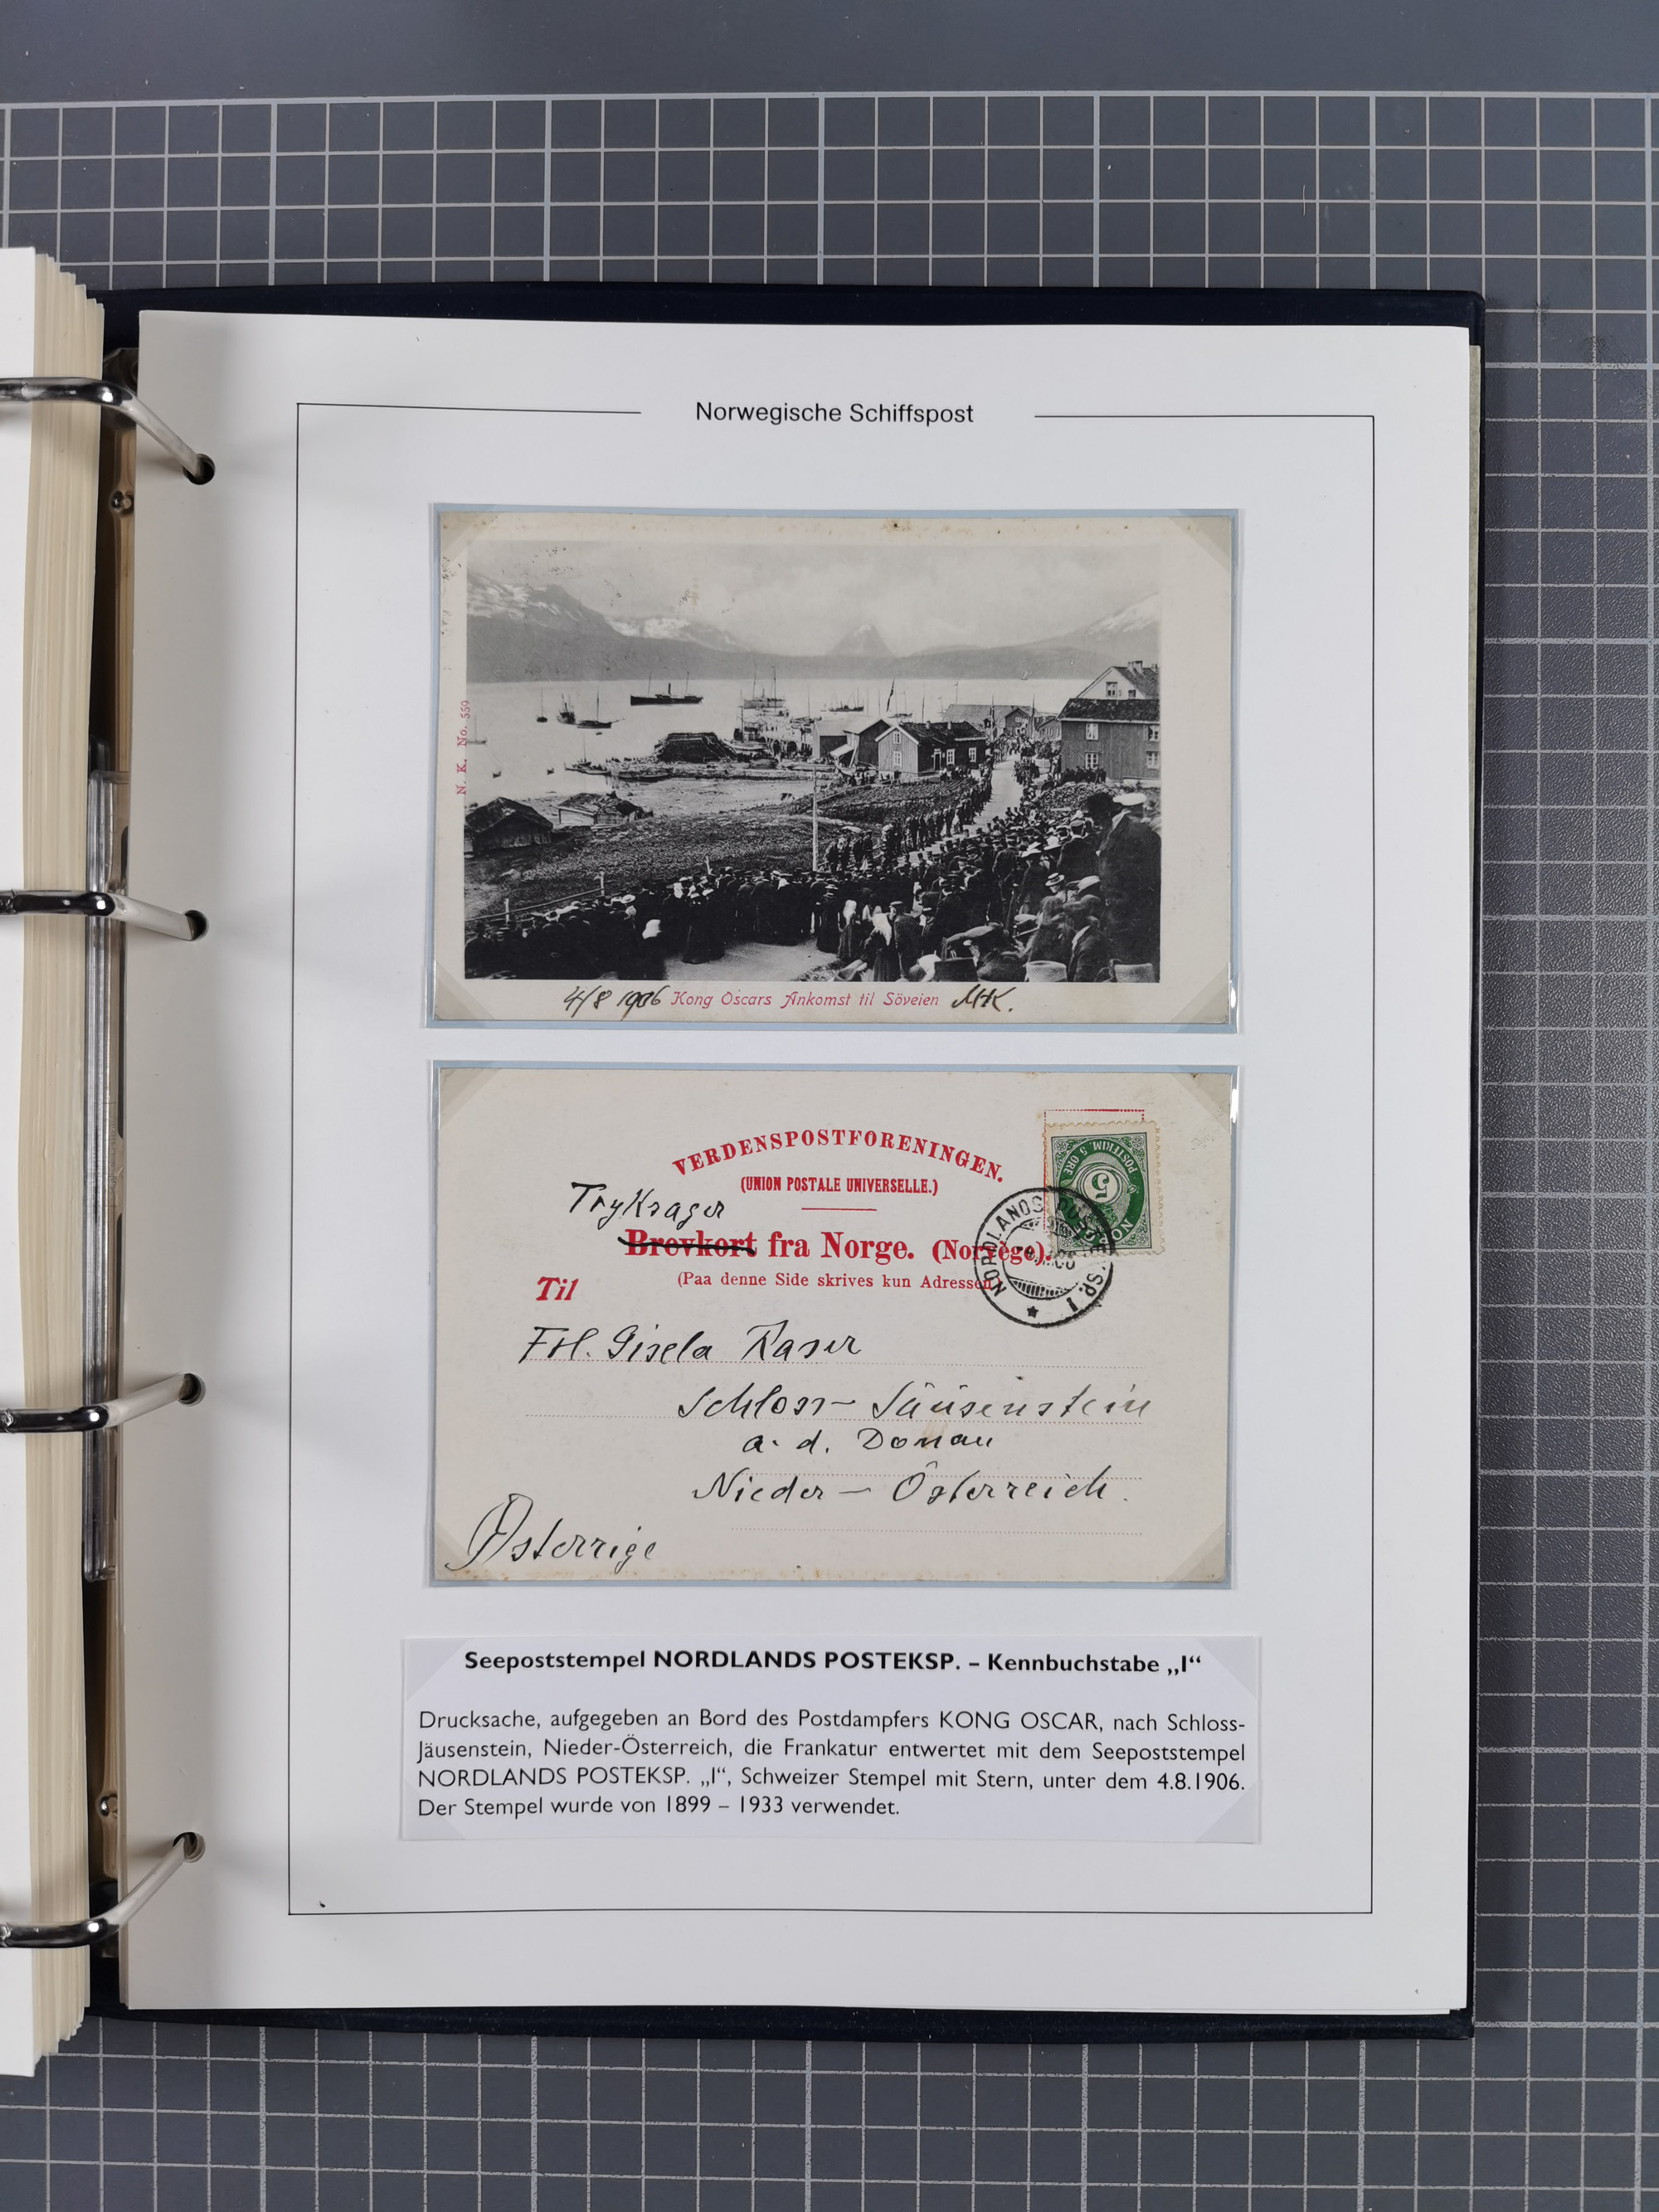 Norwegische Schiffspost
N. K. No. 559
4/8 1906 Kong Oscars Ankomst til Söveien MK.
VERDENSPOSTFORENINGEN.
(UNION POSTALE UNIVERSELLE.)
Tryksager
Brevkort fra Norge. (Norvège).
(Paa denne Side skrives kun Adressen.)
POSTFRIM. 5 ØRE
5
NORDLANDS POSTEKSP. I
Til
Frl. Gisela Kaser
Schloss- Säusenstein
a. d. Donau
Nieder- Österreich.
Østerrige
Seepoststempel NORDLANDS POSTEKSP. – Kennbuchstabe „I“
Drucksache, aufgegeben an Bord des Postdampfers KONG OSCAR, nach Schloss-
Jäusenstein, Nieder-Österreich, die Frankatur entwertet mit dem Seepoststempel
NORDLANDS POSTEKSP. „I“, Schweizer Stempel mit Stern, unter dem 4.8.1906.
Der Stempel wurde von 1899 – 1933 verwendet.